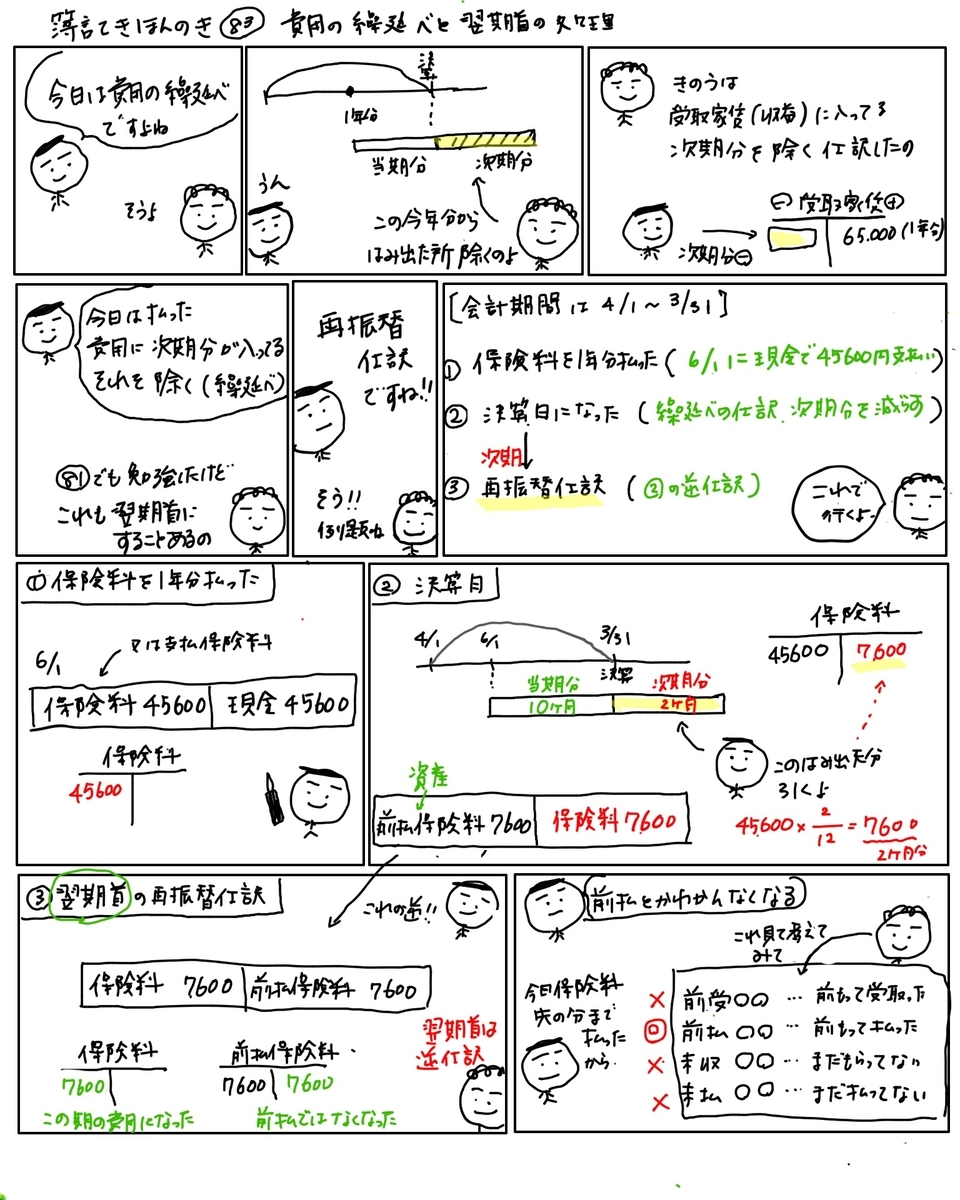 簿記きほんのき 83 費用の繰延べと翌期首の処理
今日は費用の繰延べ
ですよね
そうよ
決算
1年分
当期分 次期分
うん
この今年分から
はみ出た所除くのよ
きのうは
受取家賃(収益)に入ってる
次期分を除く仕訳したの
次期分⊖
⊖ 受取家賃 ⊕
65.000(1年分)
今日は払った
費用に次期分が入ってる
それを除く(繰延べ)
81でも勉強したけど
これも翌期首に
することあるの
再振替
仕訳
ですね!!
そう!!
例題ね
[会計期間は 4/1~3/31]
① 保険料を1年分払った(6/1に現金で45600円支払い)
② 決算日になった(繰延べの仕訳.次期分を減らす)
次期
③ 再振替仕訳 (②の逆仕訳)
これで
行くよー
① 保険料を1年分払った
6/1
又は支払保険料
保険料 45600 現金 45600
保険料
45600
② 決算日
4/1 6/1 3/31
決算
当期分 次期分
10ヶ月 2ヶ月
保険料
45600 7,600
このはみ出た分
引くよ
45600 × 2/12 = 7600
2ヶ月分
資産
前払保険料 7600 保険料 7600
③ 翌期首の再振替仕訳
これの逆!!
保険料 7600 前払保険料 7600
保険料 前払保険料
7600 7600 7600
この期の費用になった 前払ではなくなった
翌期首は
逆仕訳
前払とかわかんなくなる
これ見て考えて
みて
今日保険料
先の分まで
払った
から
× 前受○○ … 前もって受取った
◎ 前払○○ … 前もって払った
× 未収○○ … まだもらってない
× 未払○○ … まだ払ってない